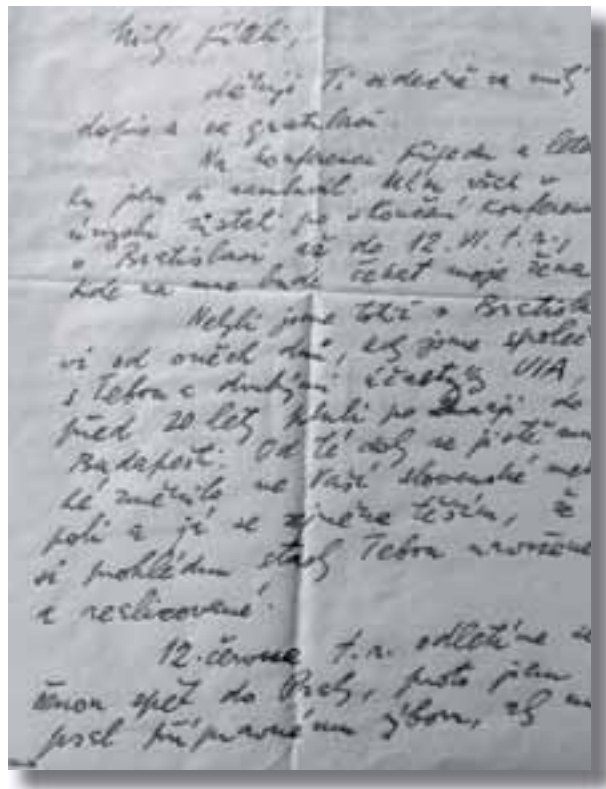 Milý příteli,
děkuji Ti srdečně za milý
dopis a za gratulaci.
Na konferenci přijedu a leten
ku jsem si zamluvil. Mám však v
úmyslu zůstat po skončení konference
v Bratislavě až do 12.VI.t.r.,
kde na mne bude čekat moje žena
Nebyli jsme totiž v Bratisla
vě od oněch dnů, kdy jsme společ
s Tebou a druhými účastníky UIA,
před 20 lety pluli po Dunaji do
Budapešti. Od té doby se jistě mno
hé změnilo ve Vaší slovenské metro
poli a já se zejména těším, že
si prohlédnu stavby Tebou navržené
a realizované.
12. června t.r. odletíme se
ženou zpět do Prahy, proto jsem
psal přípravnému výboru, aby